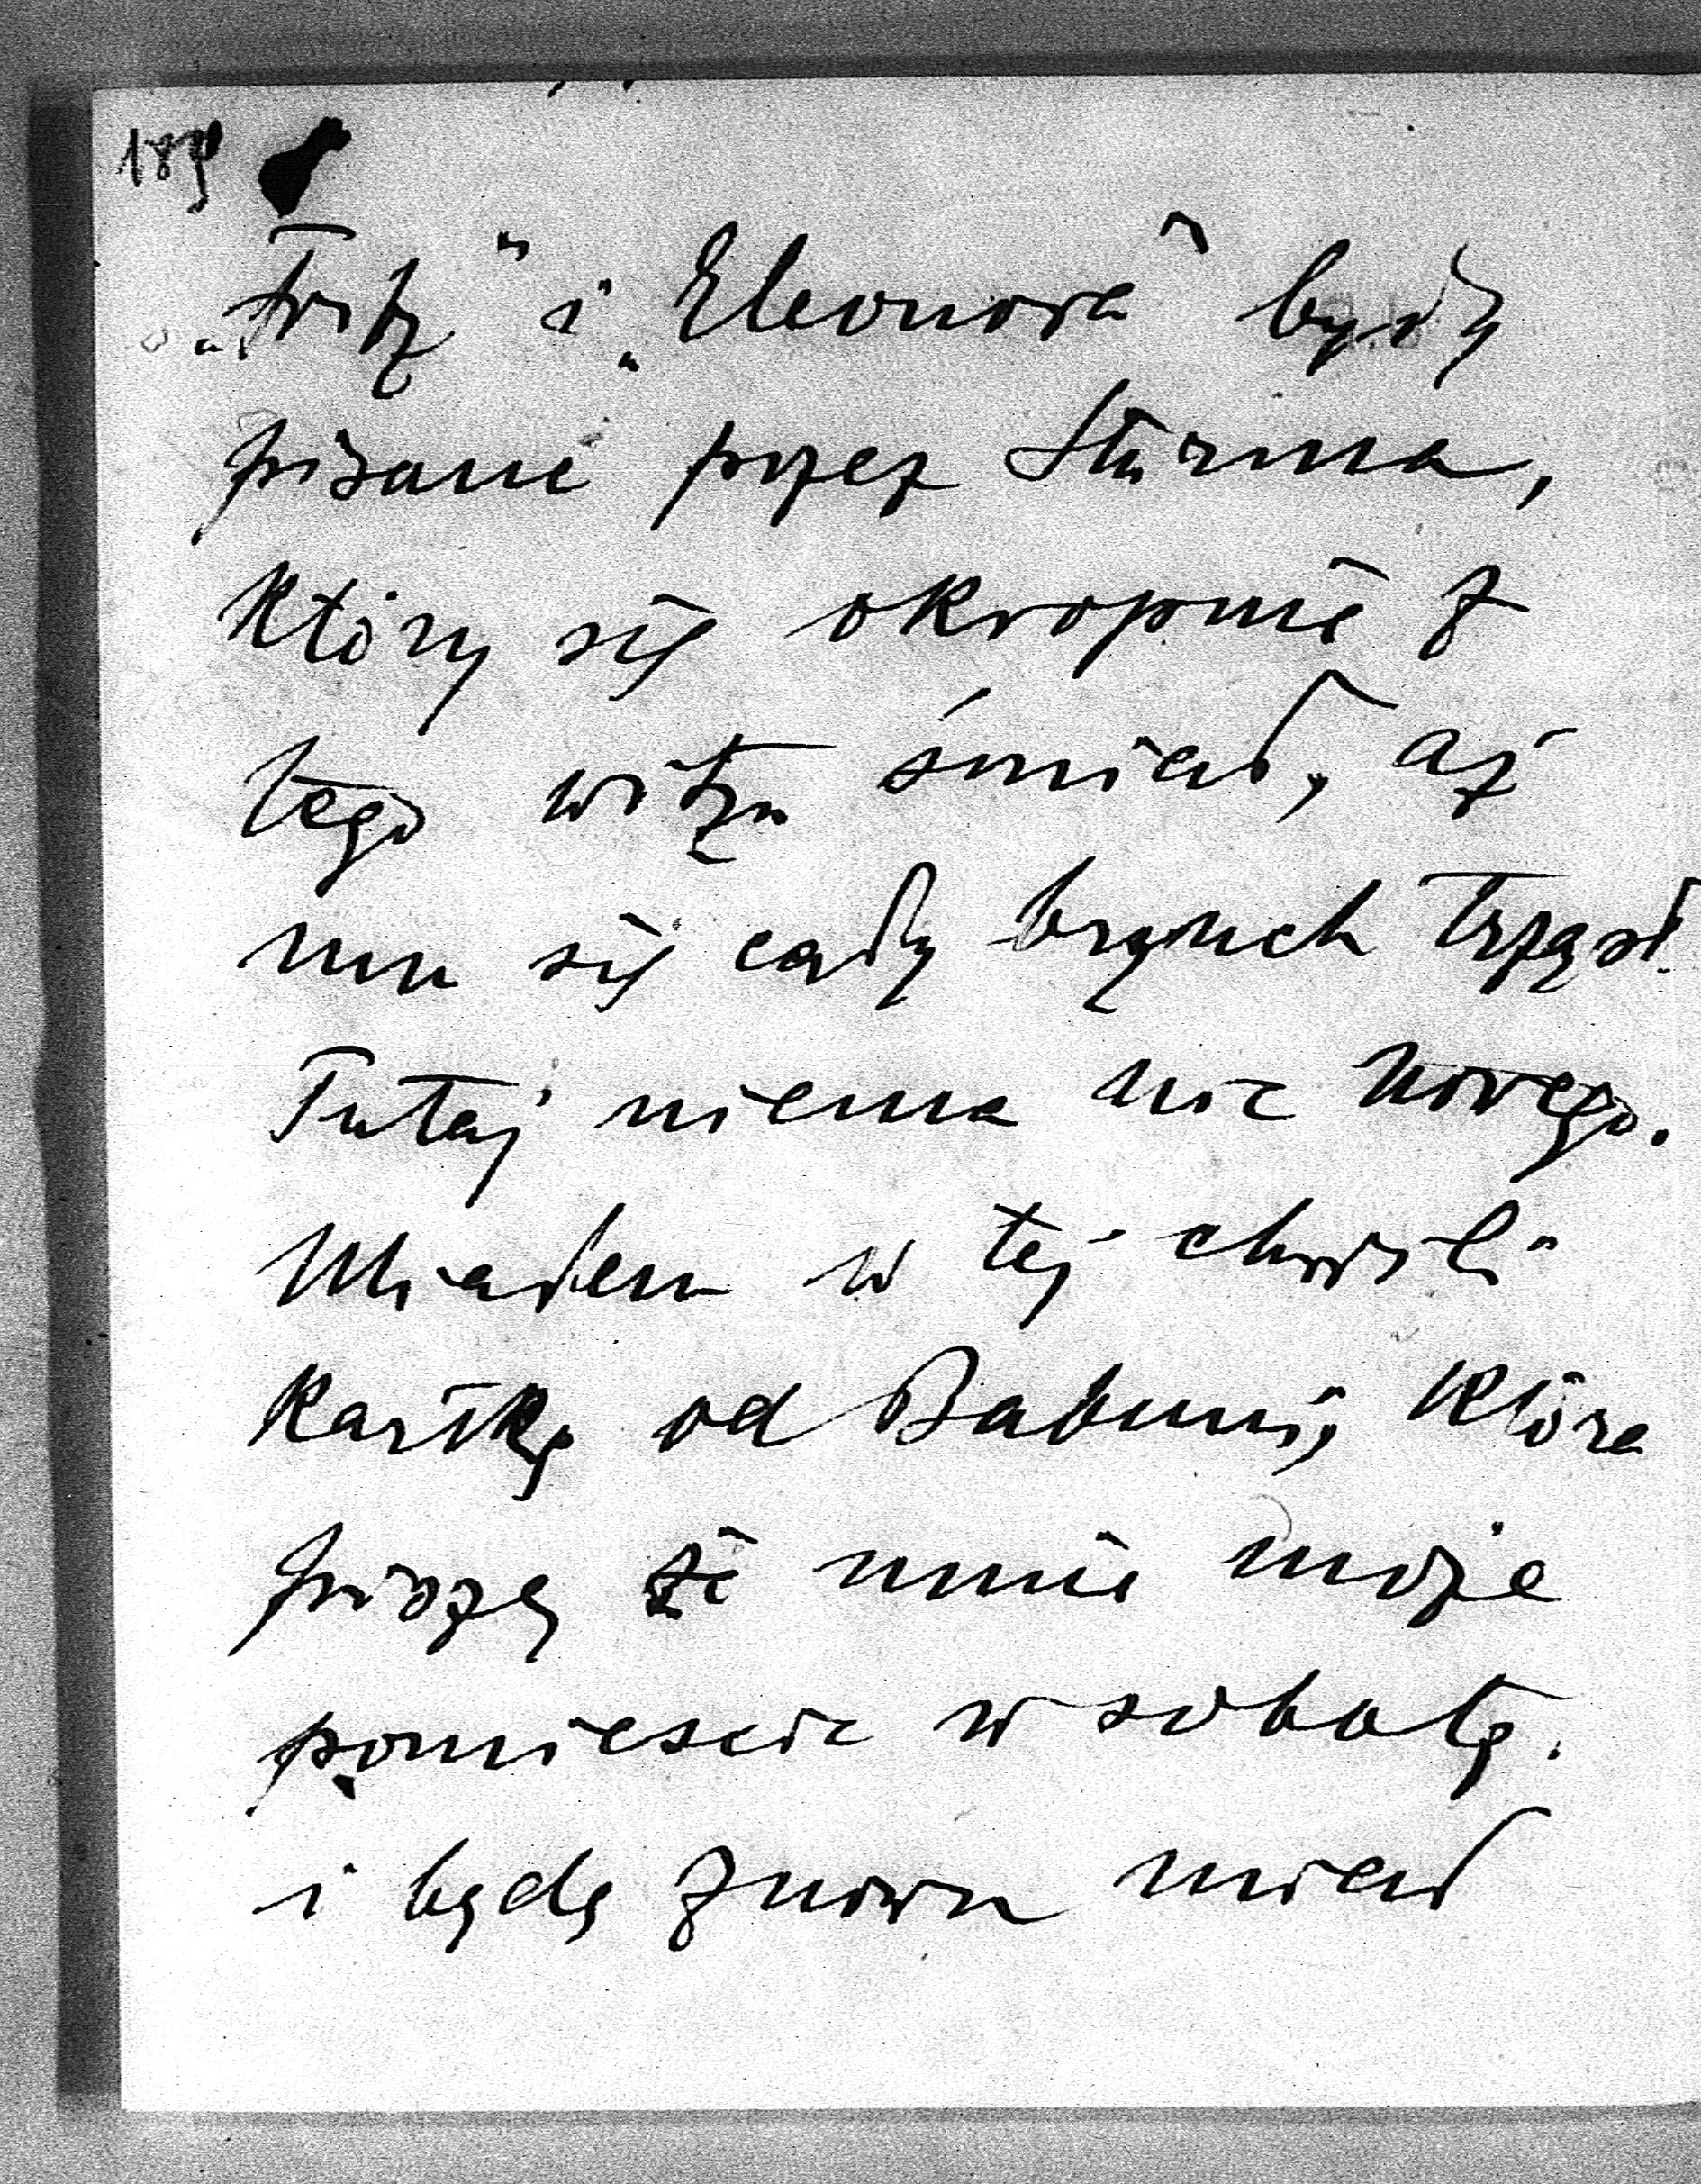 189
„Fritz” i „Eleonora” były
pisane przez Stürma,
który się okropnie z
tego witzu śmiał, aż
mu się cały brzuch trząsł.
Tutaj niema nic nowego.
Miałem w tej chwili
kartkę od Babuni, która
piszę że mnie może
pomiescic w sobotę.
i będę znowu miał